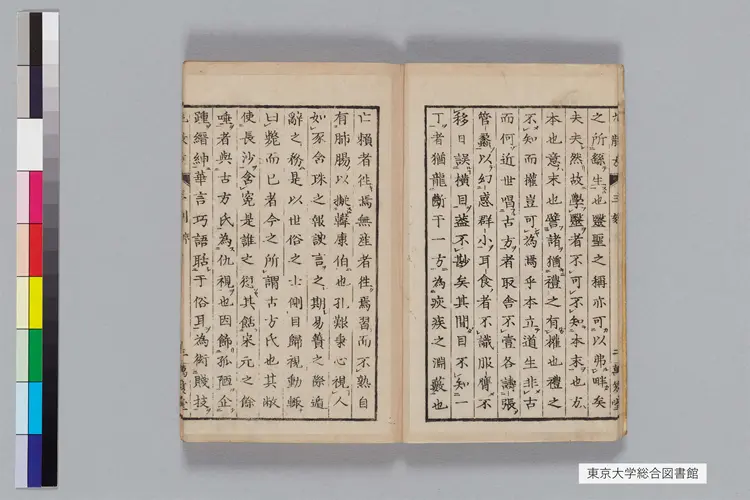 之所繇生也醫聖之稱亦可以弗畔矣
夫夫然故學醫者不可不知本末也方
本也意末也譬諸猶禮之有權也禮之
不知而權豈可為焉乎本立道生非古
而何近世唱古方者取舍不壹各譸張
管蠡以幻惑群小耳食者不識服膺不
移日誤橫目蓋不尠矣其間目不知一
丁者猶龍斷于一方為疾疢之淵藪也
亡賴者徃焉無産者徃焉習而不熟自
有肺腸以韓康伯也孔艱秉心視人
如豕含珠之報諛言之期易簀之際遁
辭之務是以世俗之士側目歸視動輒
曰斃而已者今之所謂古方氏也其敝
使長沙含寃是誰之愆其餂宋元之餘
唾者與古方氏為仇視也因飾孤陋企
踵縉紳華言巧語聒于俗耳為術賤技
東京大学総合図書館